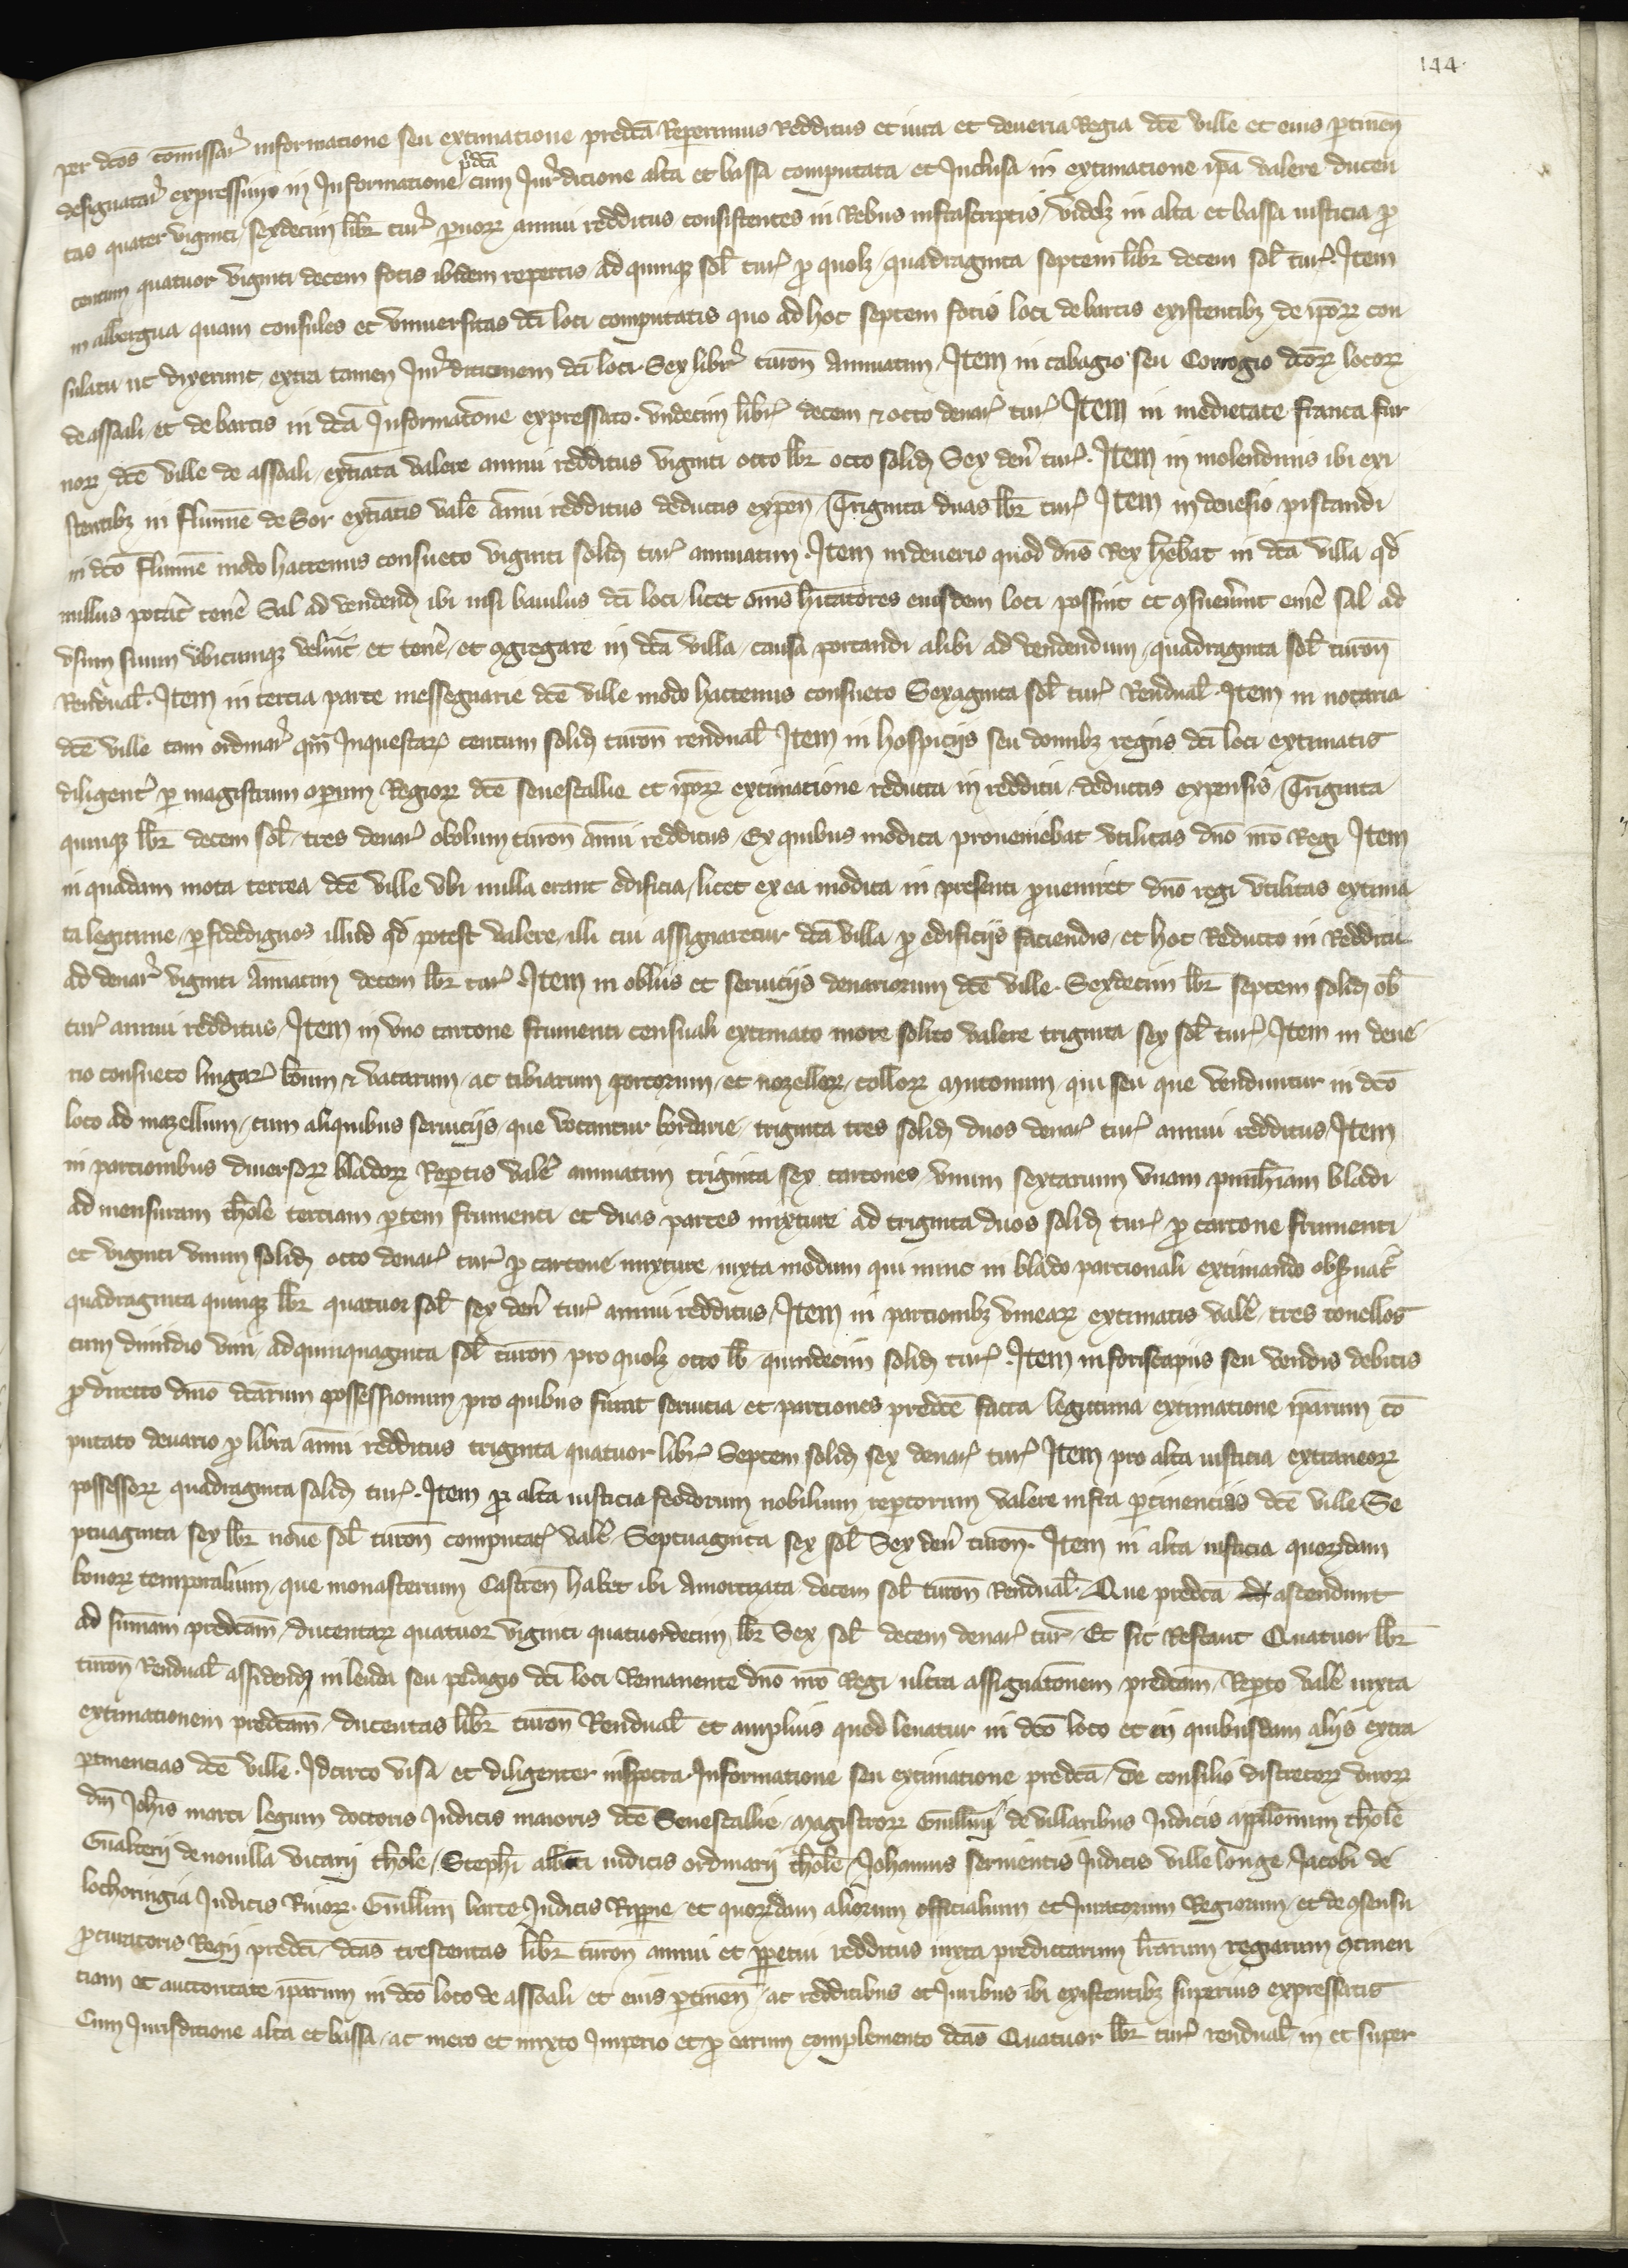 144.
per dcōs cōmissar̄ informatione seu extimatione predcā Reperimus Redditus et iura et deueria Regia dcē ville et eius ptinen̄
designatar̄ expressius in Informatione p̄dcā cum Iur̄dictione alta et bassa computata et Inclusa in extimatione ip̄a valere ducen
tas quater viginti sexdecim libr̄ tur̄ paruoꝝ annui redditus consistentes in Rebus infrascriptis videlꝫ in alta et bassa iusticia pro
centum quatuor viginti decem focis ibidem repertis ad quinqꝫ sol̄ tur̄ pro quolꝫ quadraginta septem libr̄ decem sol̄ tur̄. Item
in albergua quam consules et vniuersitas dcī loci computatis quo ad hoc septem focis loci de bartis existentibꝫ de ip̄oꝝ con
sulatu ut dixerunt extra tamen Iur̄dictionem dcī loci. Sex libr̄ turon̄ Annuatim. Item in cabagio seu Corrogio dcōꝝ locoꝝ
de assoali et de bartis in dcā Informatōne expressato. vndecim libr̄ decem & octo denar̄ tur̄ Item in medietate franca fur
noꝝ dcē ville de assoali extiāta valere annui redditus viginti octo libr̄ octo solid̄ Sex den̄ tur̄. Item in molendinis ibi exi
stentibꝫ in flumīe de Sor extiātis valē annui redditus deductis expen̄ Triginta duas libr̄ tur̄ Item in deuesio piscandi
in dcō flumīe modo hactenus consueto viginti solid̄ tur̄ annuatim. Item in deuerio quod dn̄s Rex hēbat in dcā villa qd̄
nullus potāt tenē Sal ad vendend̄ ibi nisi baiulus dcī loci licet om̄s hītatores eiusdem loci possint et ꝯsueuer̄int emē sal ad
vsum suum vbicumqꝫ velīnt et tenē et ꝯgregare in dcā villa causa portandi alibi ad vendendum quadraginta sol̄ turon̄
Rendual̄. Item in tercia parte messeguarie dcē ville modo hactenus consueto Sexaginta sol̄ tur̄ Rendual̄. Item in notaria
dcē ville tam ordinar̄ qm̄ Inquestar̄ centum solid̄ turon̄ rendual̄ Item in hospiciis seu domibꝫ regiis dcī loci extimatis
diligent̄ p magistrum operum Regioꝝ dcē senescallie et ip̄oꝝ extimatione reducta in redditu deductis expensis Triginta
quinqꝫ libr̄ decem sol̄ tres denar̄ obolum turon̄ annui redditus Ex quibus modica proueniebat vtilitas dn̄o nr̄o Regi Item
in quadam mota terrea dcē ville vbi nulla erant edificia licet ex ea modica in presenti proueniret dn̄o regi vtilitas extima
ta legitime p fidedignos illud qd̄ potest valere illi cui assignaretur dcā villa pro edificiis faciendis et hoc Reducto in Redditu
ad denar̄ viginti Annuatim decem libr̄ tur̄ Item in obliis et seruiciis denariorum dcē ville. Sexdecim libr̄ septem solid̄ ob̄
tur̄ annui redditus Item in vno cartone frumenti censuali extimato more solito valere triginta sex sol̄ tur̄ Item in deue
rio consueto lingar̄ boum & vacarum ac tibiarum porcorum et nozelloꝝ colloꝝ mutonum qui seu que venduntur in dcō
loco ad mazellum cum aliquibus seruiciis que vocantur bordarie triginta tres solid̄ duos denar̄ tur̄ annui redditus Item
in parcionibus diuersoꝝ bladoꝝ Reptis valē annuatim triginta sex cartones vnum sextarium vnam punheriam bladi
ad mensuram thole terciam ptem frumenti et duas partes mixture ad triginta duos solid̄ tur̄ pro cartone frumenti
et viginti vnum solid̄ octo denar̄ tur̄ pro cartone mixture iuxta modum qui nunc in blado parcionali extimando obseruat̄
quadraginta quinqꝫ libr̄ quatuor sol̄ sex den̄ tur̄ annui redditus Item in parcionibꝫ vinearꝝ extimatis valē tres tonellos
cum dimidio vini ad quinquaginta sol̄ turon̄ pro quolꝫ octo lib̄ quindecim solid̄ tur̄. Item in foriscapiis seu vendis debitis
pro directo dn̄io dcārum possessionum pro quibus fiunt seruicia et parciones predcē facta legitima extimatione ip̄arum cō
putato denario pro libra annui redditus triginta quatuor libr̄ Septem solid̄ sex denar̄ tur̄ Item pro alta iusticia extraneoꝝ
possessoꝝ quadraginta solid̄ tur̄. Item pro alta iusticia feodorum nobilium reptorum valere infra ptinencias dcē ville Se
ptuaginta sex libr̄ nouē sol̄ turon̄ computar̄ valē Septuaginta sex sol̄ Sex den̄ turon̄. Item in alta iusticia quorūdam
bonoꝝ temporalium que monasterium Castren̄ habet ibi Amortizata decem sol̄ turon̄ Rendual̄. Que predcā ascendunt
ad summam predcām ducentaꝝ quatuor viginti quatuordecim libr̄ Sex sol̄ decem denar̄ tur̄ Et sic Restant Quatuor libr̄
turon̄ Rendual̄ assidend̄ in leuda seu pedagio dcī loci Remanente dn̄o nr̄o Regi ultra assignatōnem predcām Repto valē iuxta
extimationem predcām ducentas libr̄ turon̄ Rendual̄ et amplius quod leuatur in dcō loco et in quibusdam aliis extra
ptinencias dcē ville. Idcirco visa et diligenter inspecta Informatione seu extimatione predcā de consilio discretoꝝ viroꝝ
dn̄i Joh̄is marci legum doctoris Iudicis maioris dcē Senescallie Magistroꝝ Guill̄mi de villaribus Iudicis appllōnum thole
Gualterii de nouilla vicarii thole Steph̄i albati iudicis ordinarii thole Johannis seruientis Iudicis ville longe Jacobi de
lochoringia Iudicis Riuoꝝ. Guill̄mi barte Iudicis Rippie et quorūdam aliorum officialium et Iuratorum Regiorum et de ꝯsensu
procuratoris Regii predcī dcās trescentas libr̄ turon̄ annui et ppetui redditus iuxta predictarum lr̄arum regiarum ꝯtinen
tiam et auctoritate ip̄arum in dcō loco de assoali et eius ptinen̄ ac redditibus et Iuribus ibi existentibꝫ superius expressatis
Cum Iurisdictione alta et bassa ac mero et mixto Imperio et pro earum complemento dcās Quatuor libr̄ tur̄ rendual̄ in et super